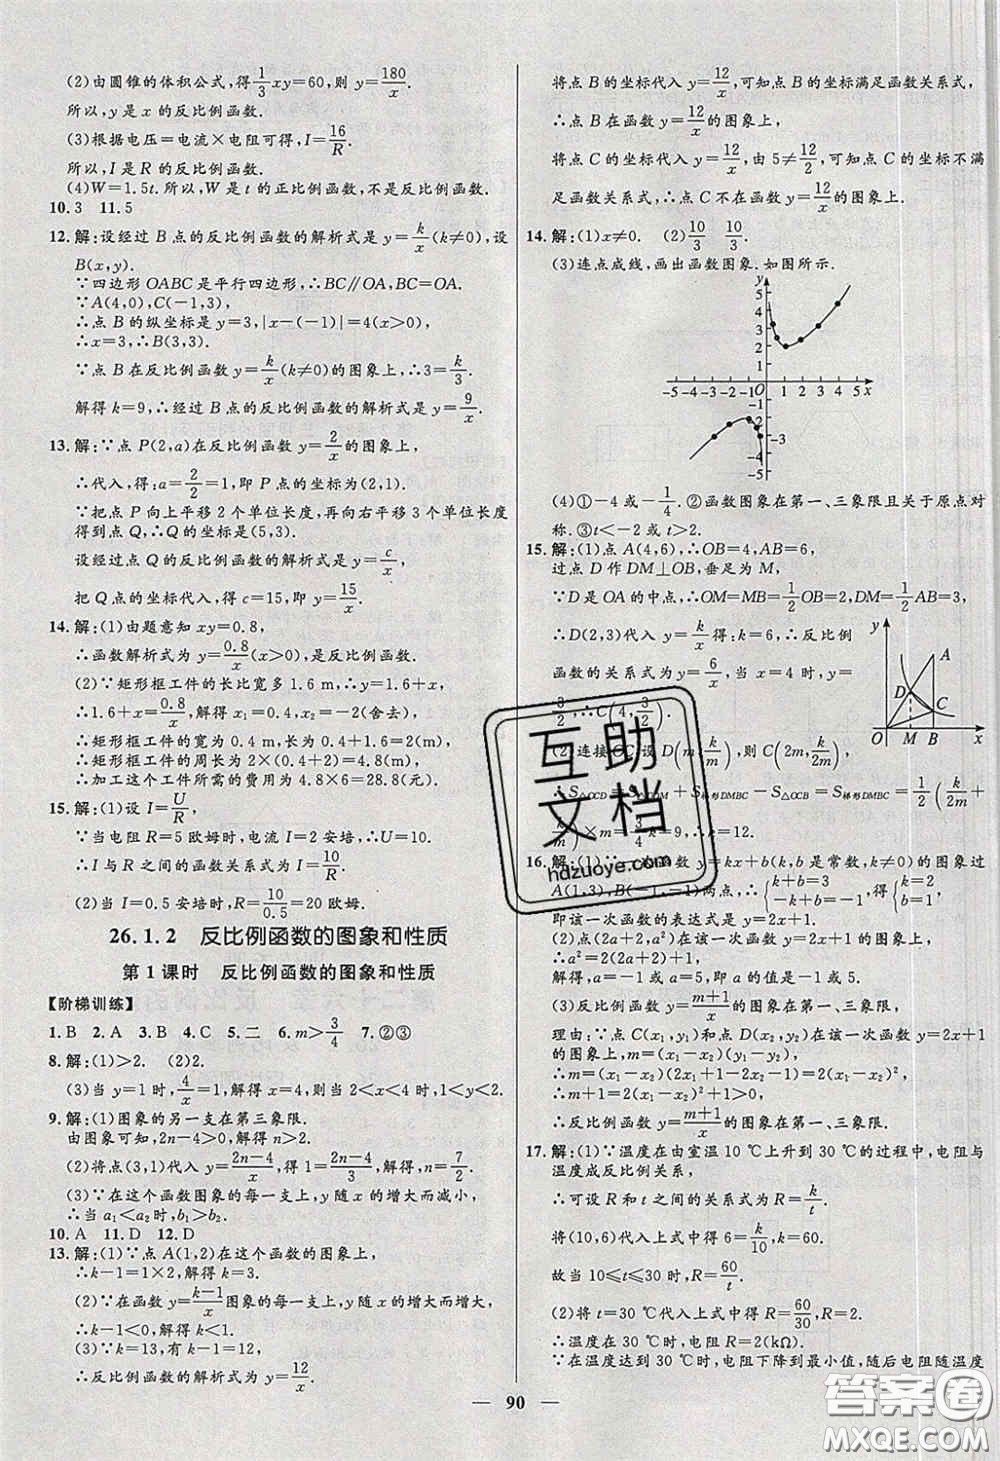 (2)由圆锥的体积公式,得1/3xy=60,则 y=180/x.
所以,y是x的反比例函数.
(3)根据电压=电流×电阻可得,I=16/R.
所以,I是R的反比例函数.
(4)W=1.5t.所以,W是t的正比例函数,不是反比例函数.
10.3 11.5
12.解:设经过B点的反比例函数的解析式是y=k/x(k≠0),设
B(x,y).
∵四边形OABC是平行四边形,∴BC∥OA,BC=OA.
∵A(4,0),C(-1,3),
∴点B的纵坐标是y=3,|x-(-1)|=4(x>0),
∴x=3,∴B(3,3).
∵点B在反比例函数y=k/x(k≠0)的图象上,∴3=k/3.
解得k=9,∴经过B点的反比例函数的解析式是y=9/x.
13.解:∵点P(2,a)在反比例函数y=2/x的图象上,
∴代入,得:a=2/2=1,即P点的坐标为(2,1).
∵把点P向上平移2个单位长度,再向右平移3个单位长度
得到点Q,∴Q的坐标是(5,3).
设经过点Q的反比例函数的解析式是y=c/x,
把Q点的坐标代入,得c=15,即y=15/x.
14.解:(1)由题意知xy=0.8,
∴函数解析式为y=0.8/x(x>0),是反比例函数.
(2)∵矩形框工件的长比宽多1.6 m,∴y=1.6+x,
∴1.6+x=0.8/x,解得x₁=0.4,x₂=-2(舍去),
∴矩形框工件的宽为0.4 m,长为1.6+0.4=2(m),
∴矩形框工件的周长为2×(2+0.4)=4.8(m),
∴加工这个工件所需的费用为4.8×6=28.8(元).
15.解:(1)设I=U/R,
∵当电阻R=5欧姆时,电流I=2安培,∴U=10.
∴I与R之间的函数关系式为I=10/R.
(2)当I=0.5安培时,R=10/0.5=20欧姆.
26.1.2 反比例函数的图象和性质
第1课时 反比例函数的图象和性质
【阶梯训练】
1.B 2.A 3.B 4.C 5.二 6.m>3/4 7.②③
8.解:(1)>2. (2)2.
(3)当y=1时,4/x=1,解得x=4,所以当2<x<4时,1<y<2.
9.解:(1)图象的另一支在第三象限.
由图象可知,2n-4>0,解得n>2.
(2)将点(3,1)代入y=2n-4/x,得:1=2n-4/3,解得n=7/2.
(3)∵在这个函数图象的每一支上,y随x的增大而减小,
∴当a₁<a₂时,b₁>b₂.
10.A 11.D 12.D
13.解:(1)∵点A(1,2)在这个函数的图象上,
∴k-1=1×2,解得k=3.
(2)∵在函数y=k-1/x图象的每一支上,y随x的增大而增大,
∴k-1<0,解得k<1.
(3)∵k=13,有k-1=12,
∴反比例函数的解析式为y=12/x.
将点B的坐标代入y=12/x,可知点B的坐标满足函数关系式,
∴点B在函数y=12/x的图象上,
将点C的坐标代入y=12/x,由5≠12/2,可知点C的坐标不满
足函数关系式,∴点C不在函数y=12/x的图象上.
14.解:(1)x≠0. (2)10/3 10/3
(3)连点成线,画出函数图象.如图所示.
y
5
4
3
2
1
-5-4-3-2-1 O 1 2 3 4 5 x
-1
-2
-3
-4
-5
(4)①-4或-1/4.②函数图象在第一、三象限且关于原点对
称.③t<-2或t>2.
15.解:(1)点A(4,6),∴OB=4,AB=6,
过点D作DM⊥OB,垂足为M,
∵D是OA的中点,∴OM=MB=1/2OB=2,DM=1/2AB=3,
∴D(2,3)代入y=k/x得:k=6,∴反比例
函数的关系式为y=6/x,当x=4时,y=
3/2,∴C(4,3/2).
y A D C O M B x
(2)连接OC,设D(m,k/m),则C(2m,k/2m),
∴S△OCD=S△ODM+S梯形DMBC-S△OCB=S梯形DMBC=1/2(k/2m+
k/m)×m=3/4k=9,∴k=12.
16.解:(1)∵一次函数y=kx+b(k,b是常数,k≠0)的图象过
A(1,3),B(-1,-1)两点,∴{k+b=3 -k+b=-1,得{k=2 b=1,
即该一次函数的表达式是y=2x+1.
(2)点(2a+2,a²)在该一次函数y=2x+1的图象上,
∴a²=2(2a+2)+1,
解得a=-1或a=5.
(3)反比例函数y=m+1/x的图象在第一、三象限,
理由:∵点C(x₁,y₁)和点D(x₂,y₂)在该一次函数y=2x+1
的图象上,m=(x₁-x₂)(y₁-y₂),
∴m=(x₁-x₂)(2x₁+1-2x₂-1)=2(x₁-x₂)²,
∴m+1=2(x₁-x₂)²+1>0,
∴反比例函数y=m+1/x的图象在第一、三象限.
17.解:(1)∵温度在由室温10 ℃上升到30 ℃的过程中,电阻与
温度成反比例关系,
∴可设R和t之间的关系式为R=k/t,
将(10,6)代入上式中得6=k/10,k=60.
故当10≤t≤30时,R=60/t.
(2)将t=30 ℃代入上式中得R=60/30,R=2.
∴温度在30 ℃时,电阻R=2(kΩ).
∵在温度达到30 ℃时,电阻下降到最小值,随后电阻随温度
90
互助文档
hdzuoye.com
答案圈
MXQE.COM